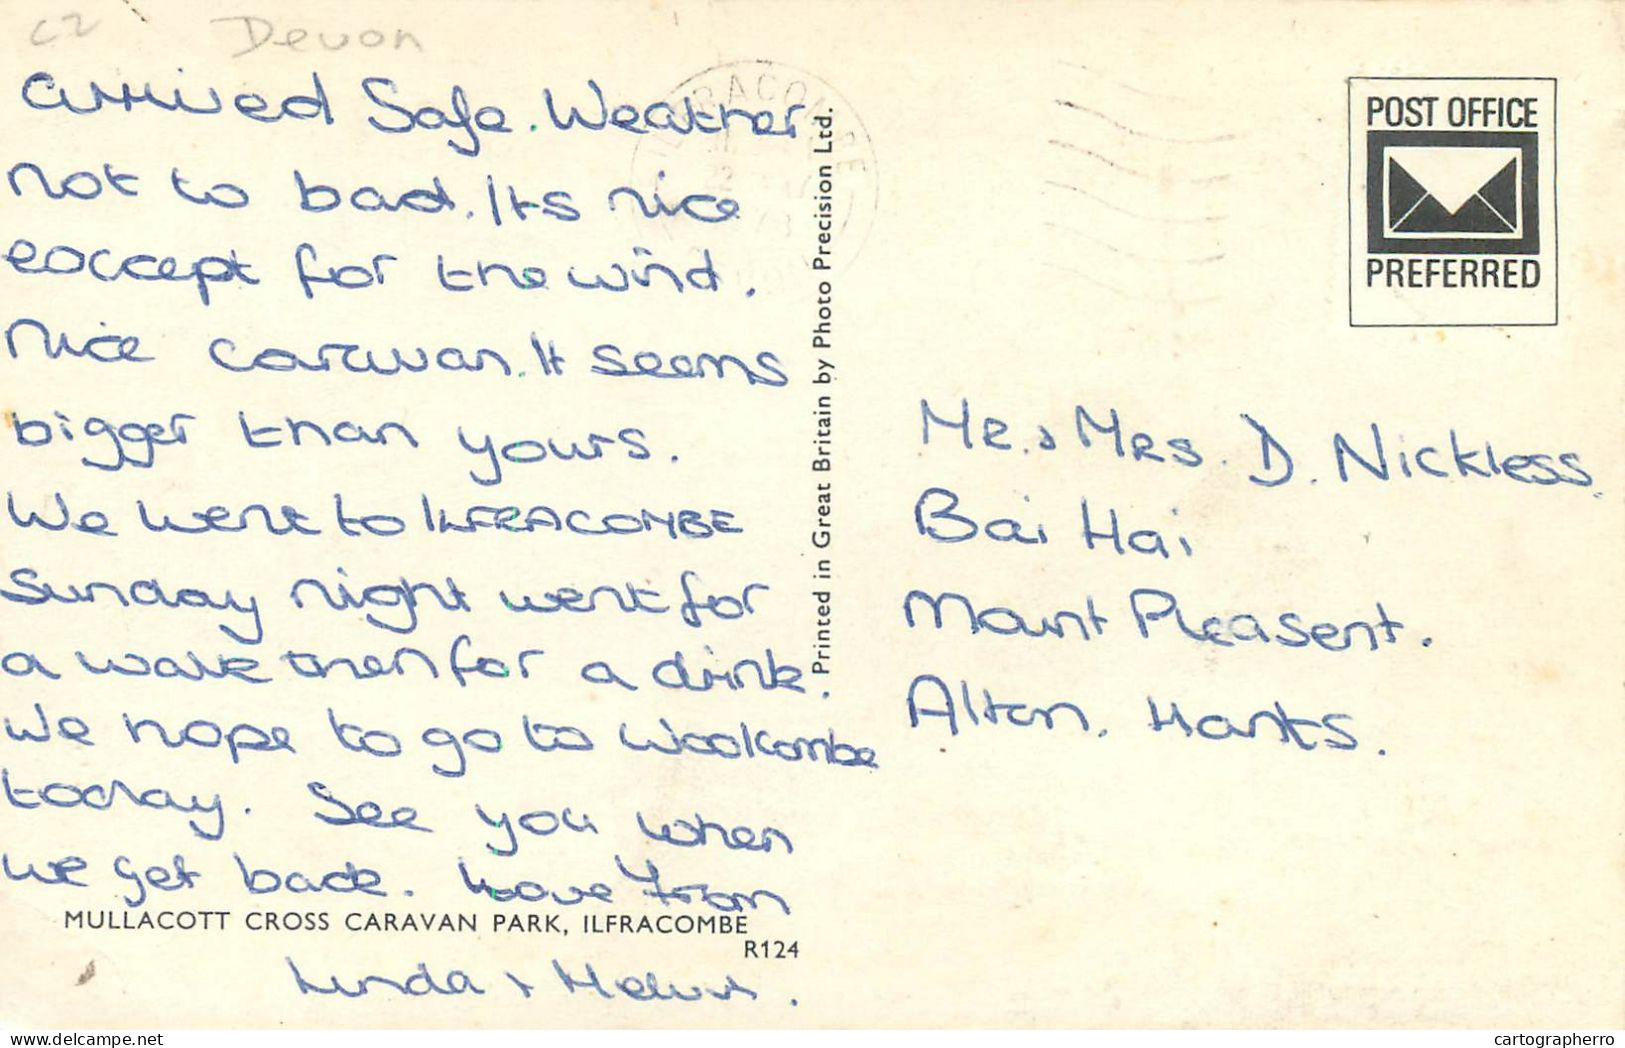 C2 Devon
arrived Safe. Weather
not to bad. Its nice
except for the wind.
Nice caravan. It seems
bigger than yours.
We went to ILFRACOMBE
Sunday night went for
a walk then for a drink.
We hope to go to Woolcombe
today. See you when
we get back. Love from
MULLACOTT CROSS CARAVAN PARK, ILFRACOMBE
R124
Linda + Melvin.
ILFRACOMBE
Printed in Great Britain by Photo Precision Ltd.
POST OFFICE
PREFERRED
MR. & MRS. D. Nickless.
Bai Hai
Mount Pleasent.
Alton. Hants.
cartographerro